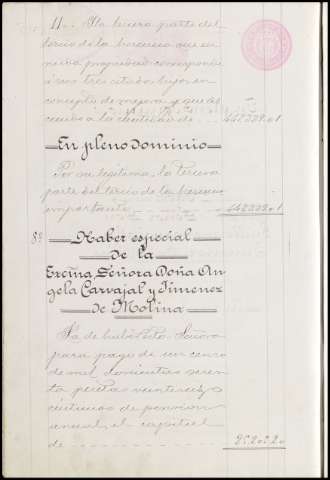 11.- La tercera parte del
tercio de la herencia que en
nuda propiedad corresponde
á sus tres citados hijos en
concepto de mejora y que as-
ciende á la cantidad de 442309.01
En pleno dominio
Por su legítima, la tercera
parte del tercio de la herencia
importante 442309.01
8º Haber especial
de la
Excma. Señora Doña An
gela Carvajal y Jimenez
de Molina
Ha de haber dicha Señora
para pago de un censo
de mil doscientas
pesetas
centimos de pension
anual, el capital
de